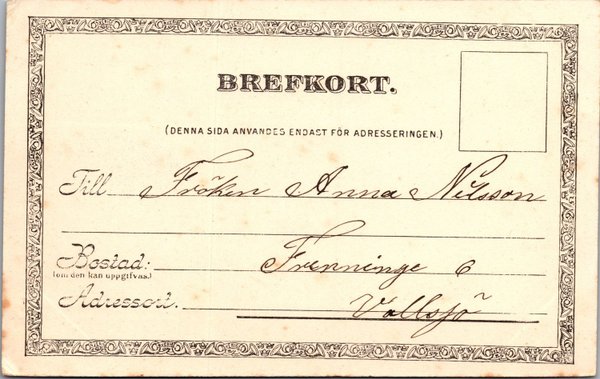 BREFKORT.
(DENNA SIDA ANVANDES ENDAST FÖR ADRESSERINGEN.)
Till Fröken Anna Nilsson
Bostad: Frenninge 6
(om den kan uppgifvas.)
Adressort. Vollsjö